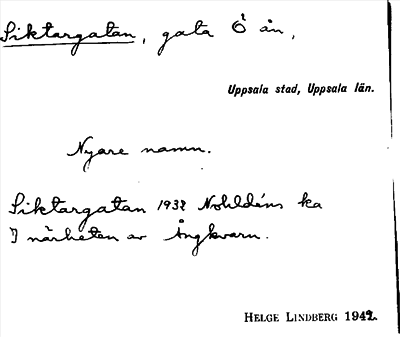 Siktargatan, gata Ö ån,
Uppsala stad, Uppsala län.
Nyare namn.
Siktargatan 1932 Nohldéns ka
I närheten av Ångkvarn.
HELGE LINDBERG 1942.